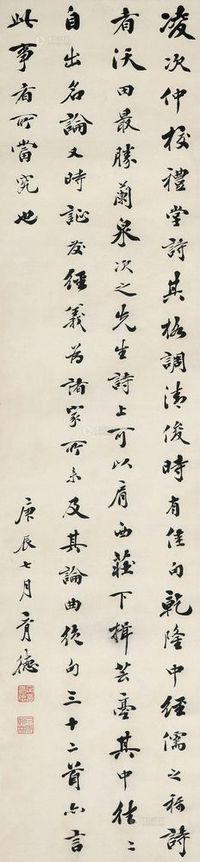 凌次仲校禮堂詩其格調清俊時有佳句乾隆中經儒之稱詩
者沃田最勝蘭泉次之先生詩上可以肩西莊下揖芸臺其中往〻
自出名論又時証發經義為諸家所未及其論曲絕句三十二首亦言
此事者所當究也
庚辰七月 育德